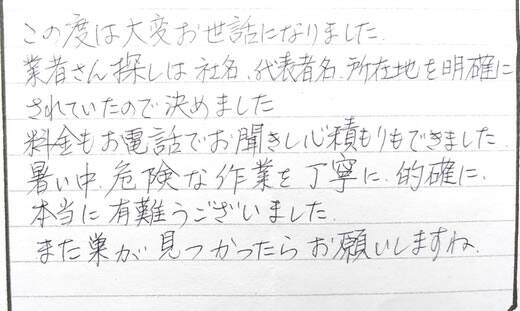 この度は大変お世話になりました.
業者さん探しは社名、代表者名、所在地を明確に
されていたので決めました
料金もお電話でお聞きし心積もりもできました.
暑い中、危険な作業を丁寧に、的確に、
本当に有難うございました.
また巣が見つかったらお願いしますね.